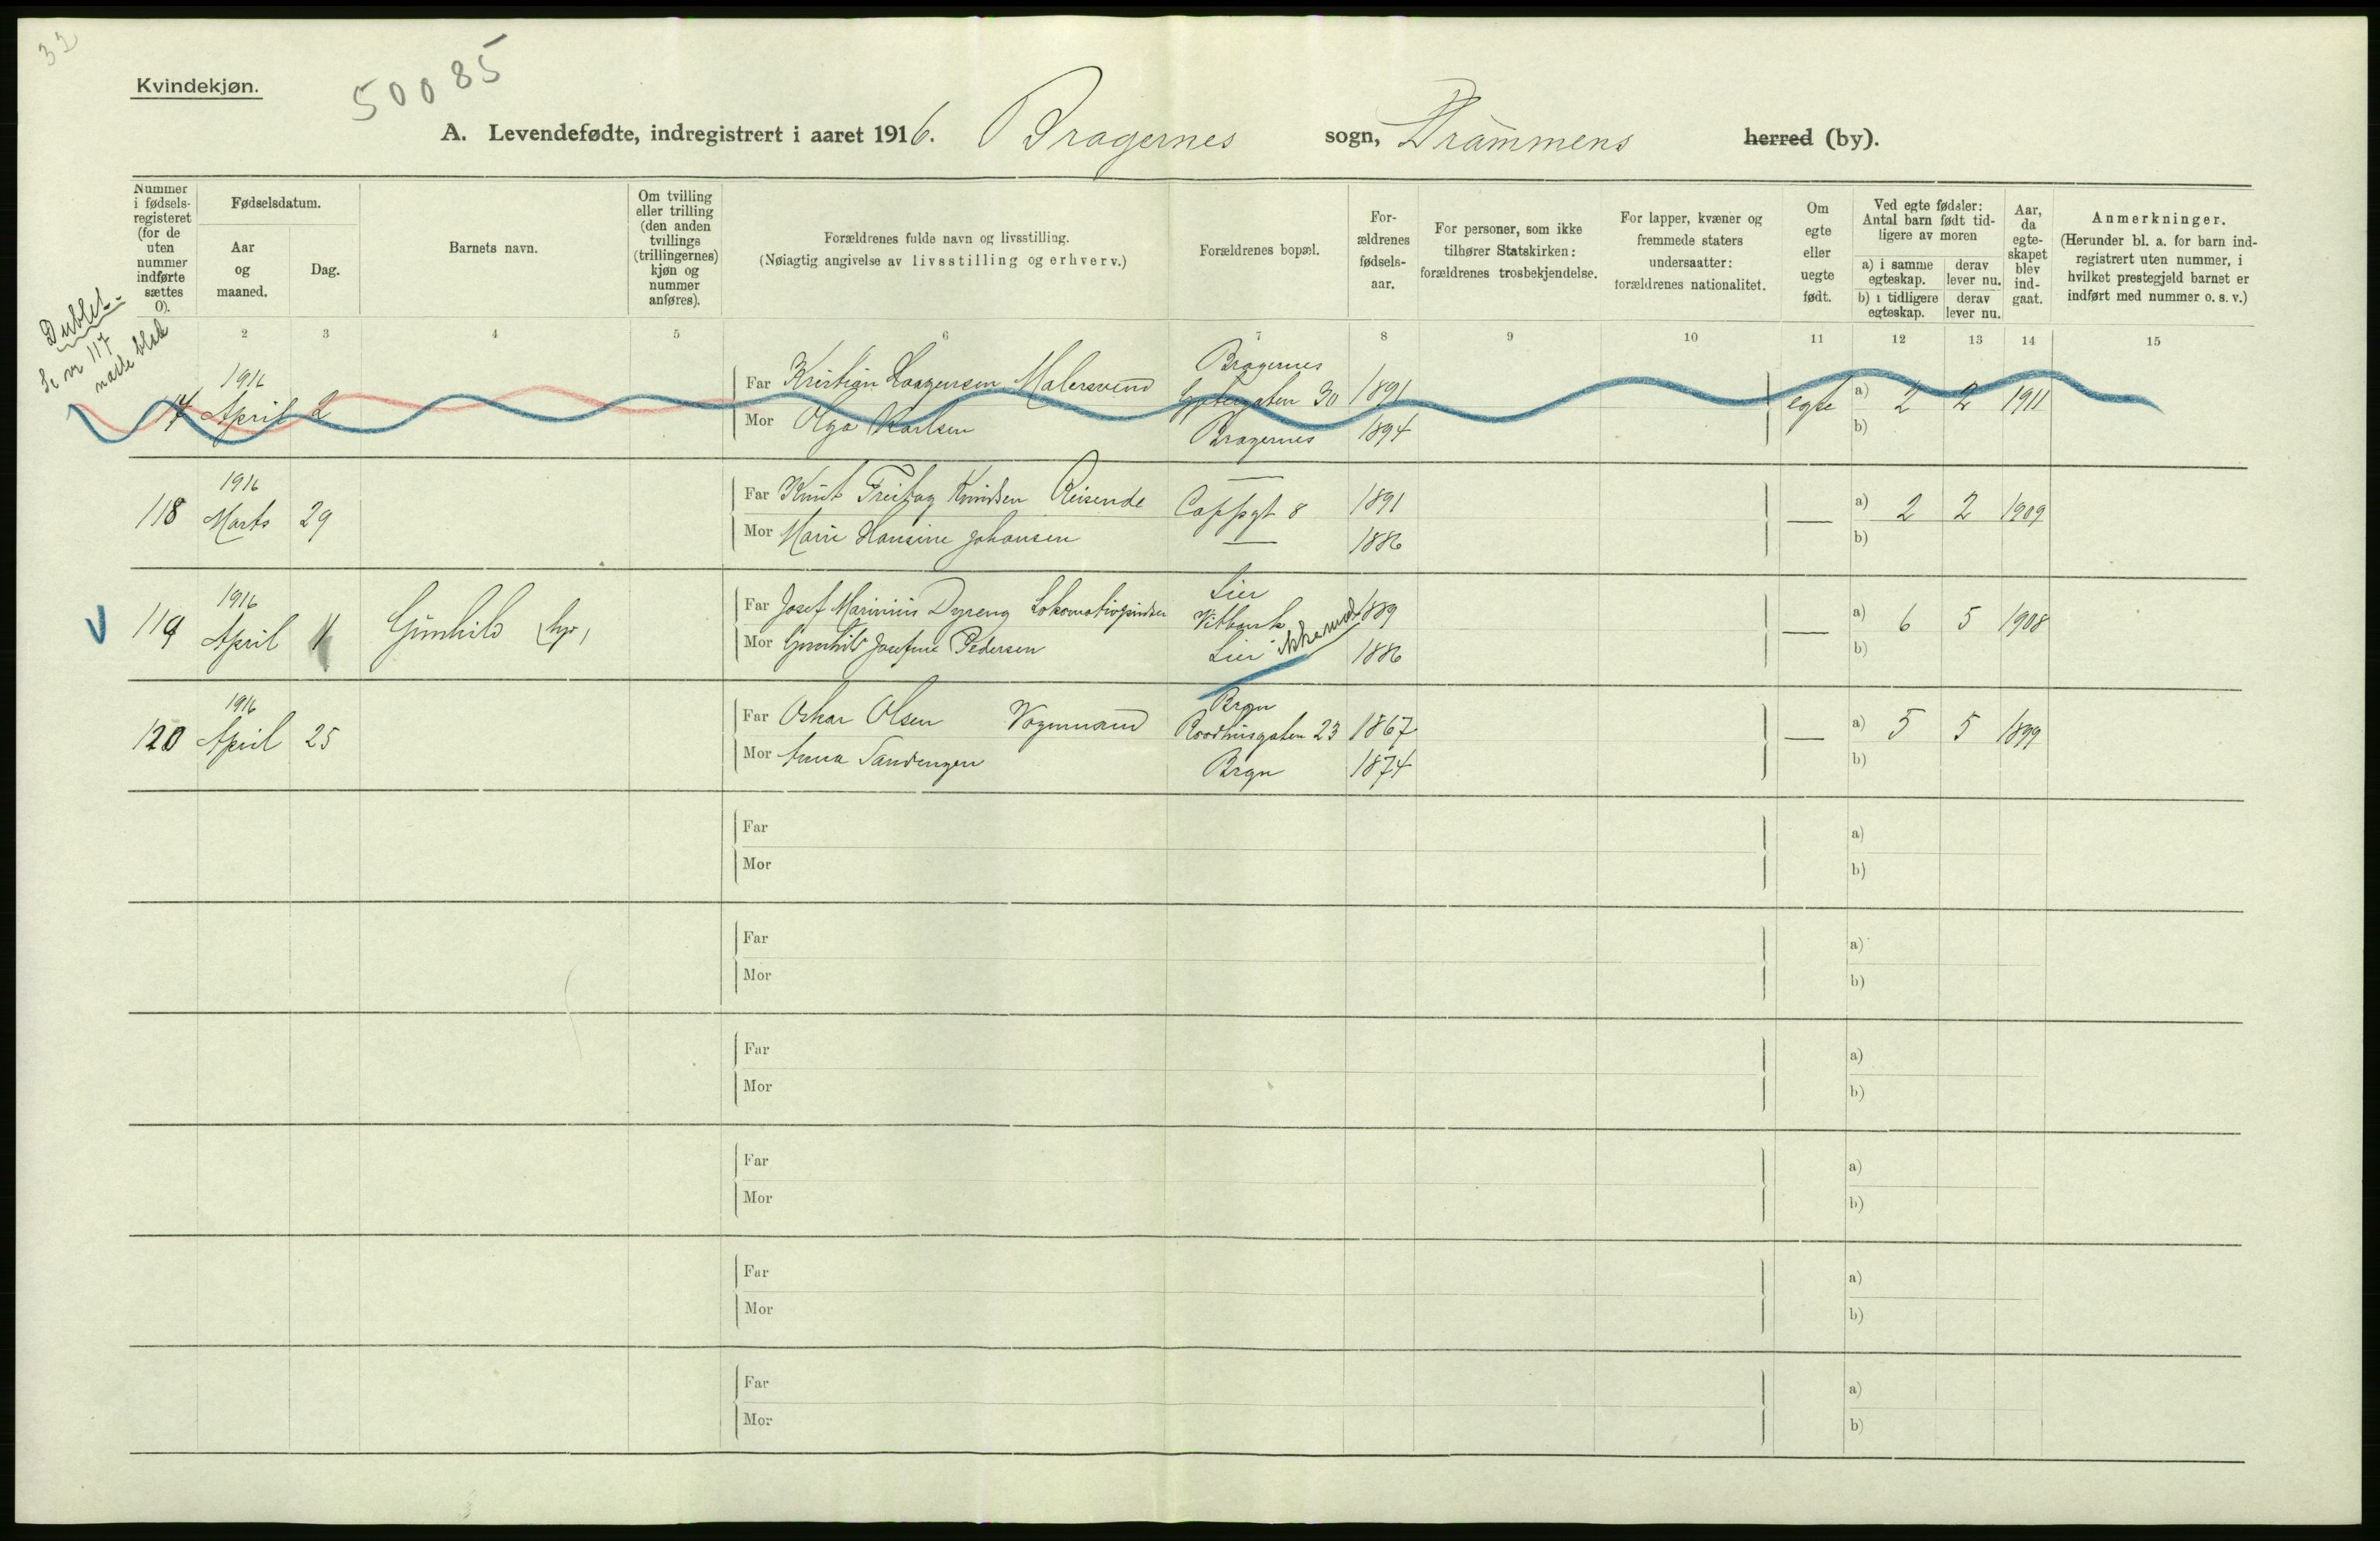 32
Kvindekjøn.
50085
A. Levendefødte, indregistrert i aaret 1916. Bragernes sogn, Drammens herred (by).
Nummer i fødsels-registeret (for de uten nummer indførte sættes 0).
Fødselsdatum.
Aar og maaned.
Dag.
Barnets navn.
Om tvilling eller trilling (den anden tvillings (trillingernes) kjøn og nummer anføres).
Forældrenes fulde navn og livsstilling.
(Nøiagtig angivelse av livsstilling og erhverv.)
Forældrenes bopæl.
For-ældrenes fødsels-aar.
For personer, som ikke tilhører Statskirken: forældrenes trosbekjendelse.
For lapper, kvæner og fremmede staters undersaatter: forældrenes nationalitet.
Om egte eller uegte født.
Ved egte fødsler: Antal barn født tid-ligere av moren
a) i samme egteskap.
derav lever nu.
b) i tidligere egteskap.
derav lever nu.
Aar, da egte-skapet blev ind-gaat.
Anmerkninger.
(Herunder bl. a. for barn ind-registrert uten nummer, i hvilket prestegjeld barnet er indført med nummer o. s. v.)
2 3 4 5 6 7 8 9 10 11 12 13 14 15
Dublet-
Se nr 117
næste blad
1916 Bragernes
Far Kristian Haagensen Malersvend 30 1891
17 April 2 egte a) 2 2 1911
Mor Olga Karlsen Bragernes 1894 b)
1916
Far Knut Freitag Knudsen Reisende Cappgt 8 1891
118 Marts 29 — a) 2 2 1909
Mor Marie Hansine Johansen — 1886 b)
1916 Lier
Far Josef Marinius Dyreng Lokomotivpudser Vitbank 1889
119 April 11 Gunhild hjp, — a) 6 5 1908
Mor Gunhild Josefine Pedersen Lier ikke med 1886 b)
1916 Brgn
Far Oskar Olsen Vognmand Raadhusgaten 23 1867
120 April 25 — a) 5 5 1899
Mor Anna Sandengen Brgn 1874 b)
Far a)
Mor b)
Far a)
Mor b)
Far a)
Mor b)
Far a)
Mor b)
Far a)
Mor b)
Far a)
Mor b)